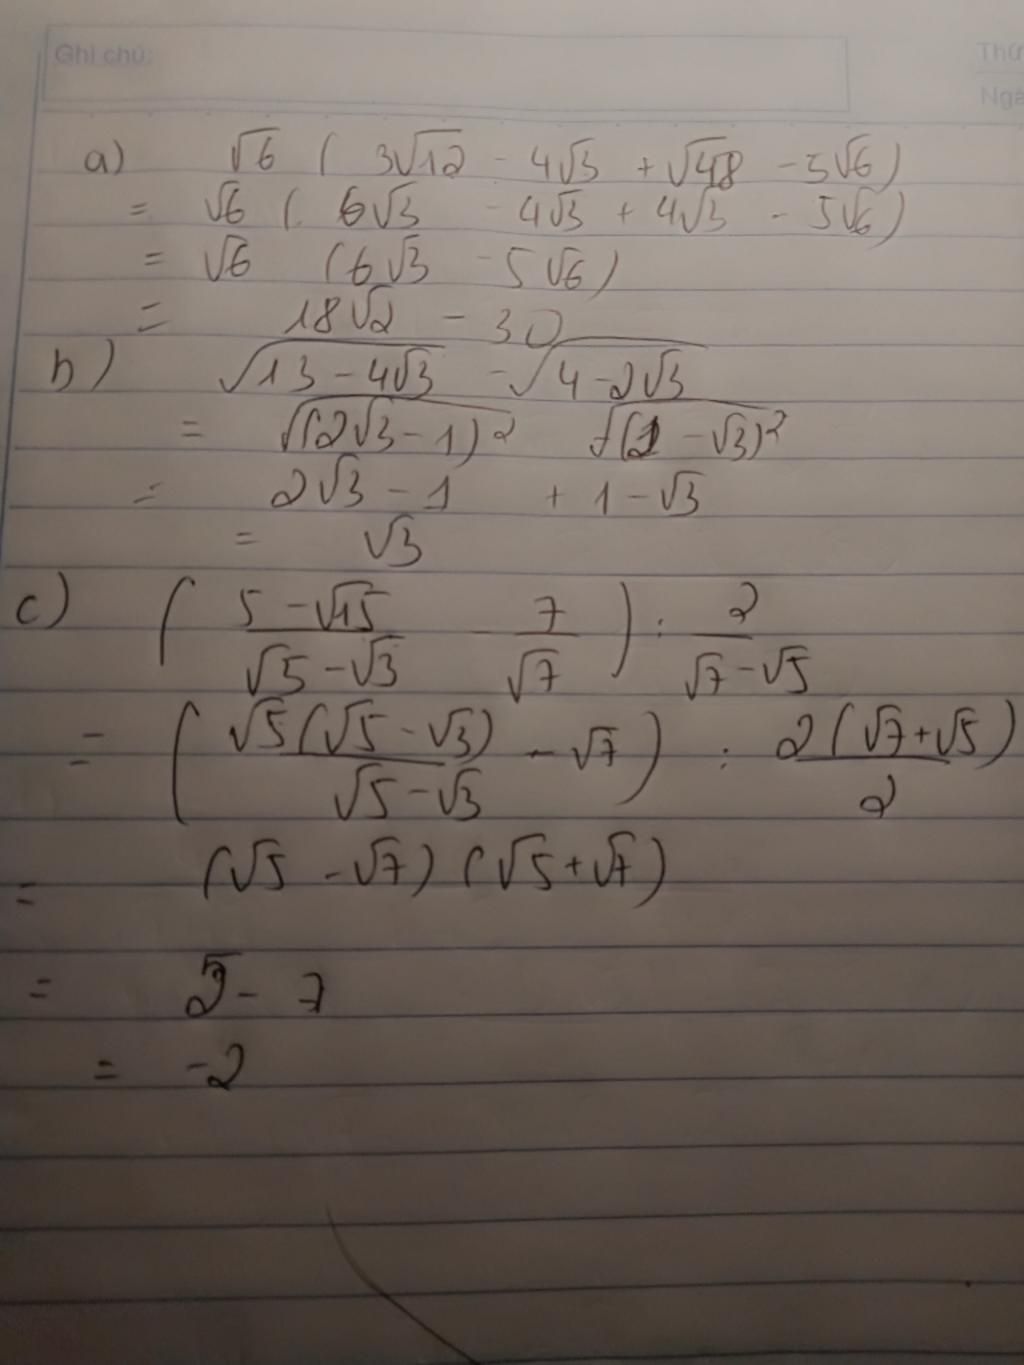 Ghi chú:
Thứ
Ngà
a) √6 ( 3√12 - 4√3 + √48 - 5√6 )
= √6 ( 6√3 - 4√3 + 4√3 - 5√6 )
= √6 ( 6√3 - 5√6 )
= 18√2 - 30
b) √(13 - 4√3) - √(4 - 2√3)
= √((2√3 - 1)²) - √((1 - √3)²)
= 2√3 - 1 + 1 - √3
= √3
c) ( (5 - √15)/(√5 - √3) - 7/√7 ) : 2/(√7 - √5)
= ( √5(√5 - √3)/(√5 - √3) - √7 ) : 2(√7 + √5)/2
= (√5 - √7) (√5 + √7)
= 5 - 7
= -2